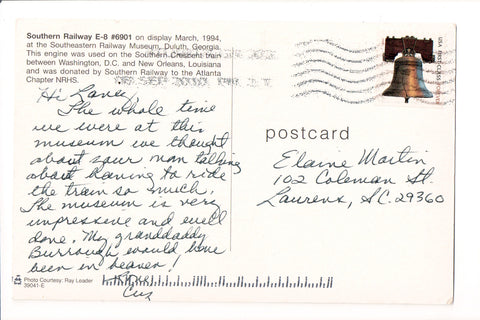 Southern Railway E-8 #6901 on display March, 1994,
at the Southeastern Railway Museum, Duluth, Georgia.
This engine was used on the Southern Crescent train
between Washington, D.C. and New Orleans, Louisiana
and was donated by Southern Railway to the Atlanta
Chapter NRHS.
Hi Laney,
The whole time
we were at this
museum we thought
about your man talking
about having to ride
the train so much.
The museum is very
impressive and well
done. My granddaddy
Burrough would have
been in heaven!
Cuz
Photo Courtesy: Ray Leader
39041-E
USA FIRST-CLASS FOREVER
postcard
Elaine Martin
102 Coleman St.
Laurens, S.C. 29360